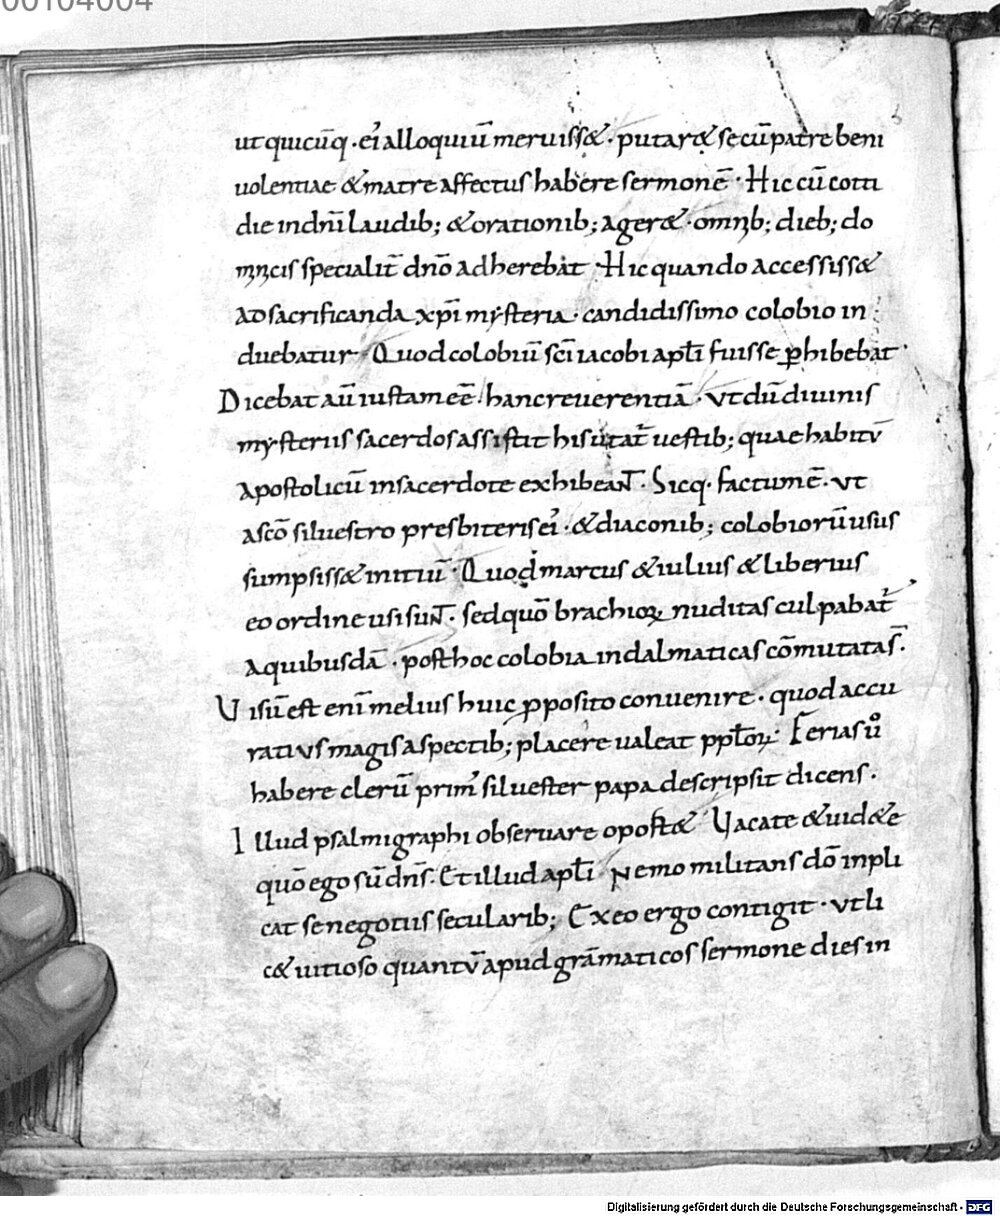 00104004
ut quicūq· ei᾽ alloquiū meruiss&· putar& se cū patre beni
uolentiae & matre affectus habere sermonē· Hic cū coti
die in dn̄i laudib; & orationib; ager&· omnib; dieb; do
minicis specialit̄ dn̄o adherebat· Hic quando accessiss&
ad sacrificanda xp̄i mysteria· candidissimo colobio in
duebatur· Quod colobiū sc̄i iacobi apl̄i fuisse ꝑhibebat·
Dicebat aū iustam eē hanc reuerentiā· ut dū diuinis
mysteriis sacerdos assistit his utat᷑ uestib; quae habitū
apostolicū in sacerdote exhibeant· Sicq· factum ē· ut
a sc̄o siluestro presbiteris ei᾽· & diaconib; colobiorū usus
sumpsiss& initiū· Quod marcus & iulius & liberius
eo ordine usi sunt· sed quō brachioꝝ nuditas culpabat᷑
a quibusdā· post hoc colobia in dalmaticas cōmutata s̄·
Uisū est eni᷑ melius huic ꝓposito conuenire· quod accu
ratius magis aspectib; placere ualeat ppl̄oꝝ· Ferias ů
habere clerū prim᾽ siluester papa descripsit dicens·
Illud psalmigraphi obseruare oport& Uacate & uid&e
quō ego sū dn̄s· Et illud apl̄i Nemo militans dō inpli
cat se negotiis secularib; Ex eo ergo contigit· ut li
c& uitioso quantū apud grāmaticos sermone dies in
Digitalisierung gefördert durch die Deutsche Forschungsgemeinschaft - DFG